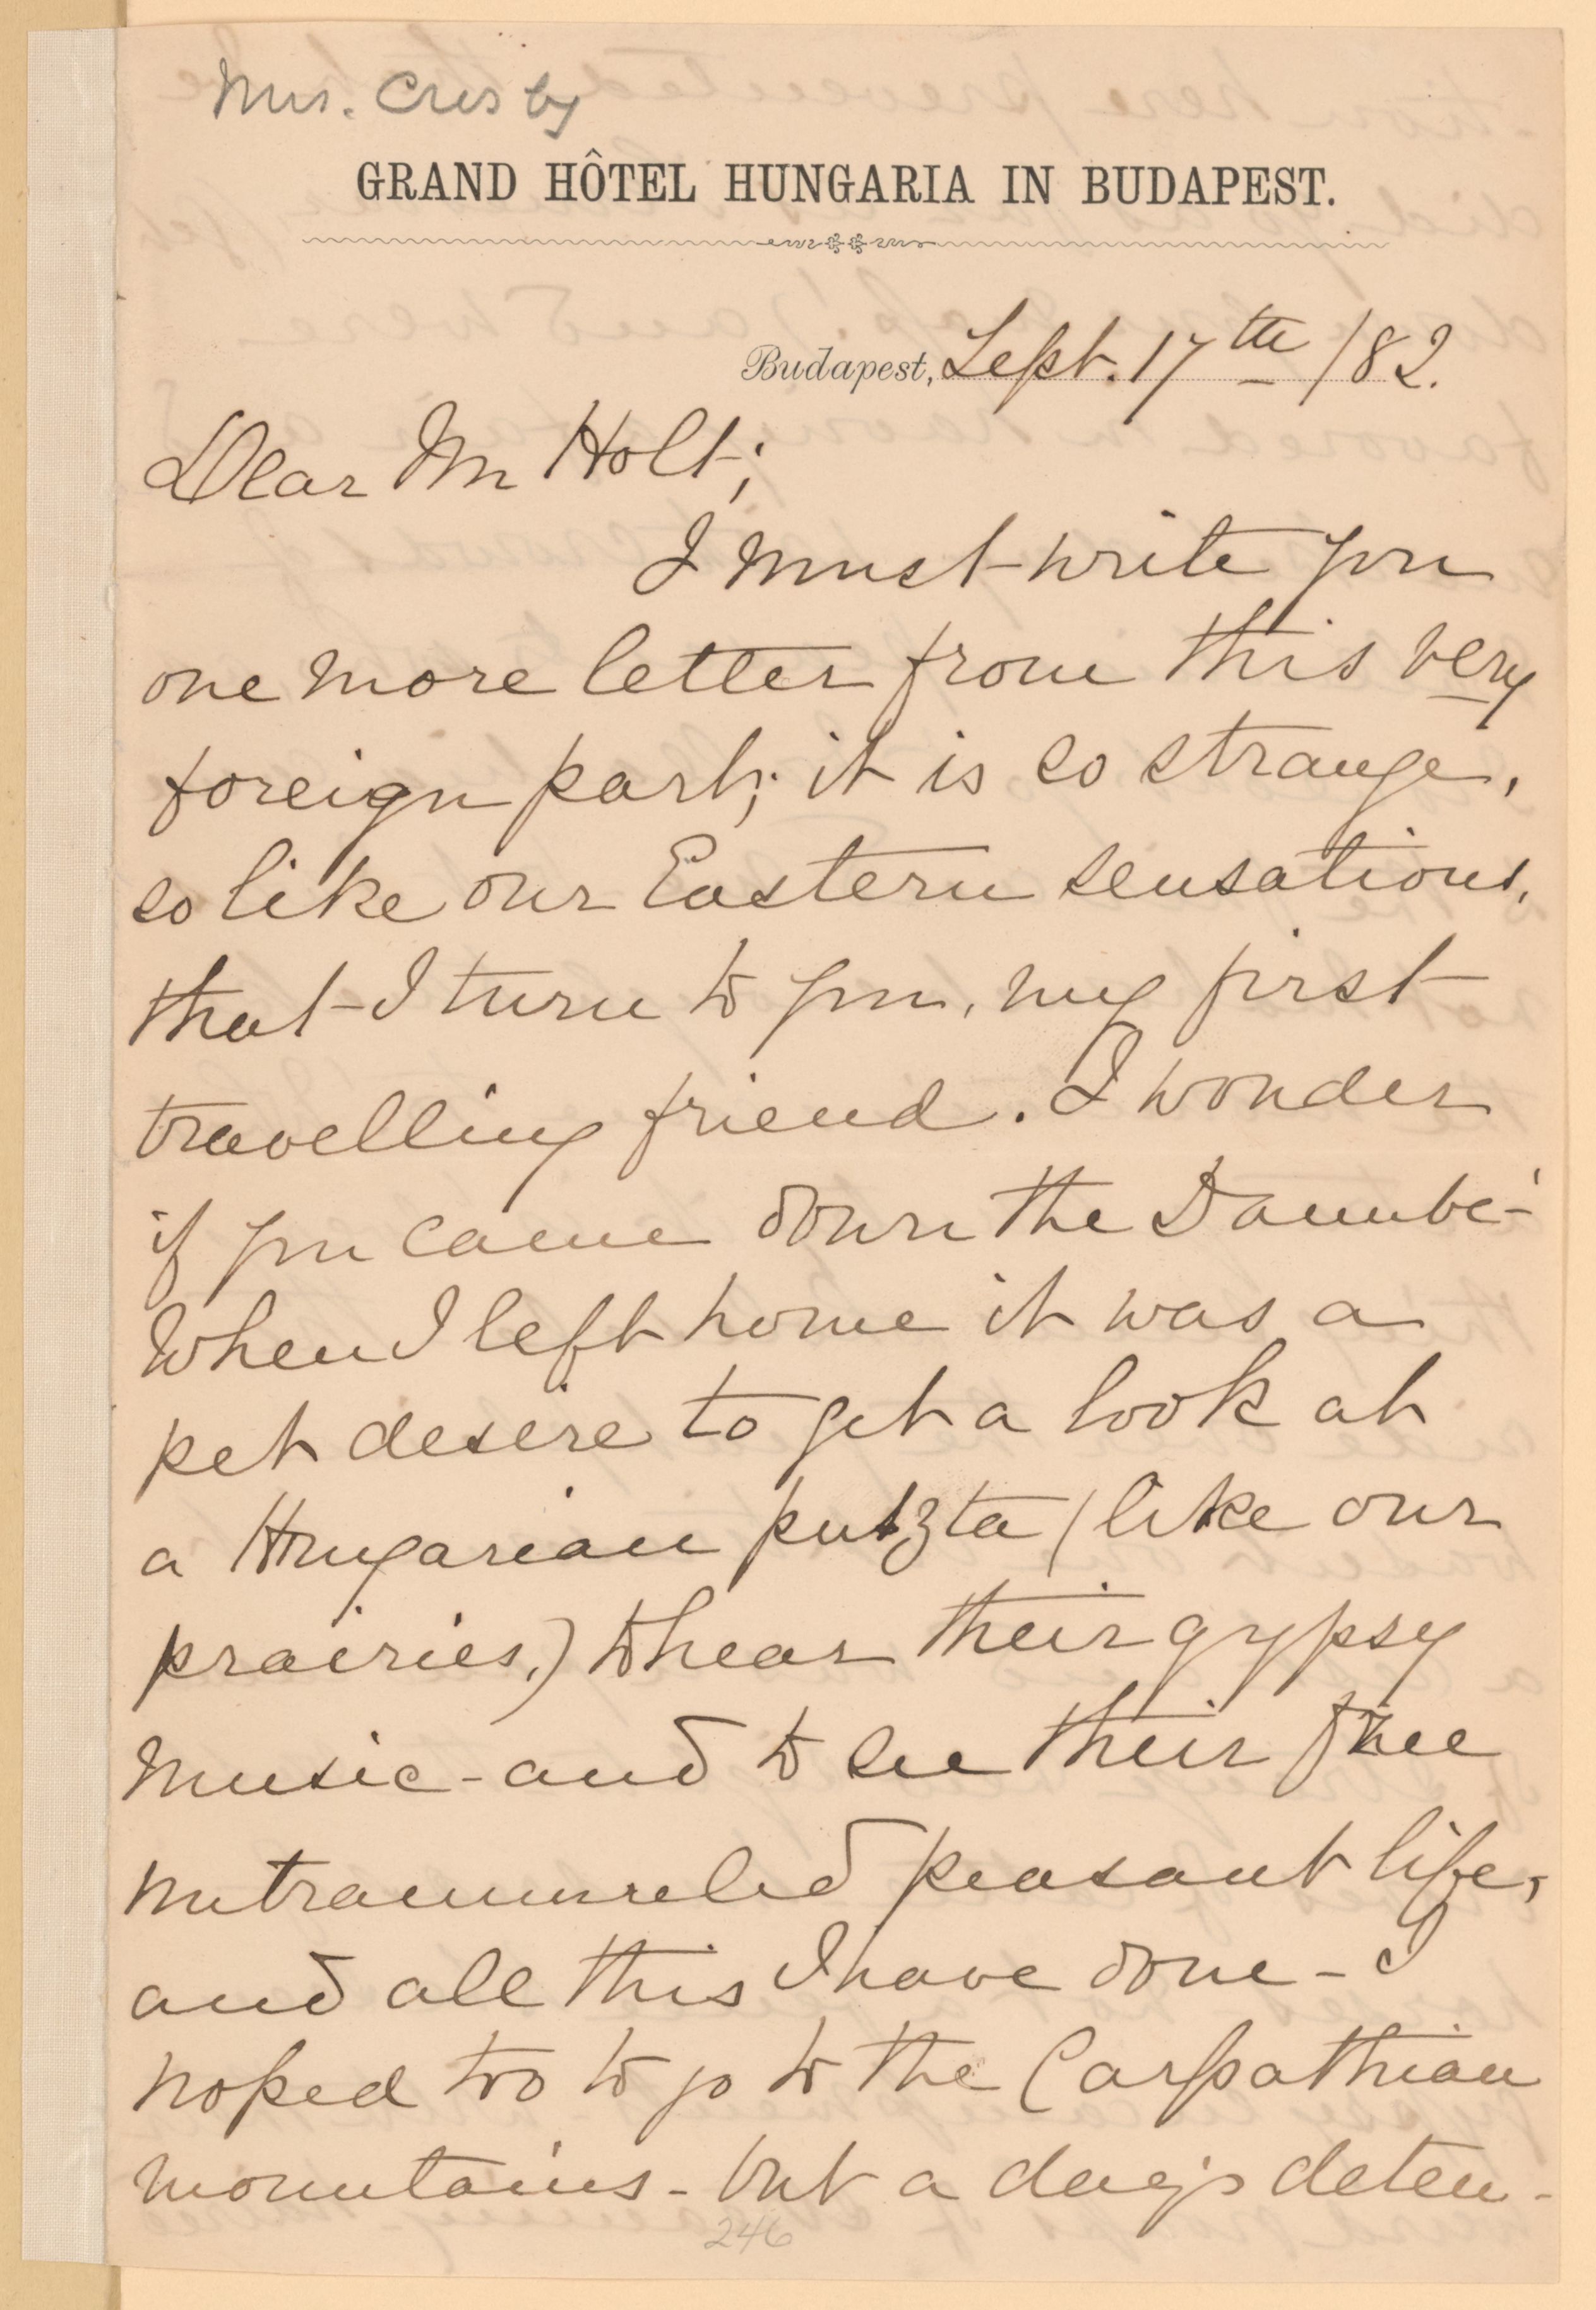 Mrs. Crosby
GRAND HÔTEL HUNGARIA IN BUDAPEST.
Budapest, Sept. 17th /82.
Dear Mr Holt;
I must write you
one more letter from this very
foreign part; it is so strange,
so like our Eastern sensations,
that I turn to you, my first
travelling friend. I wonder
if you came down the Danube-
When I left home it was a
pet desire to get a look at
a Hungarian putzta (like our
prairies,) to hear their gypsy
music - and to see their free
untrammeled peasant life,
and all this I have done - I
hoped too to go to the Carpathian
mountains - but a day's deten-
246